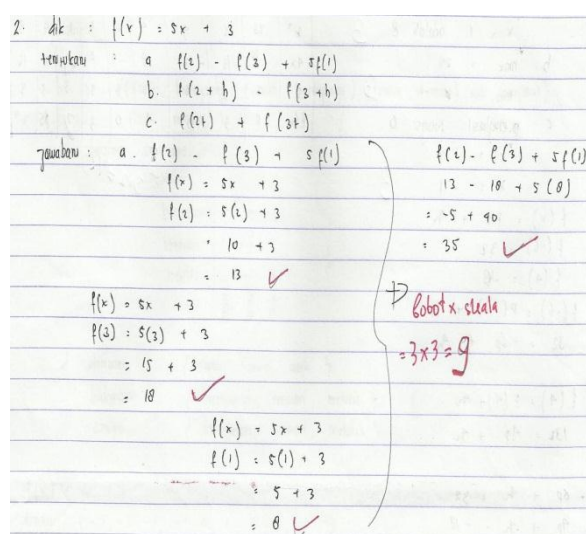 2. dik : f(x) = 5x + 3
tentukan : a f(2) - f(3) + 5f(1)
b. f(2+h) - f(3+h)
c. f(2t) + f(3t)
jawaban : a. f(2) - f(3) + 5 f(1)
f(x) = 5x + 3
f(2) = 5(2) + 3
= 10 + 3
= 13
f(x) = 5x + 3
f(3) = 5(3) + 3
= 15 + 3
= 18
f(x) = 5x + 3
f(1) = 5(1) + 3
= 5 + 3
= 8
f(2) - f(3) + 5 f(1)
13 - 18 + 5(8)
= -5 + 40
= 35
bobot x skala
= 3x3 = 9